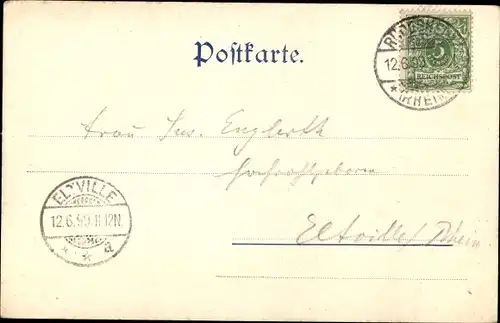 Postkarte.
RÜDESHEIM
12.6.99
* (RHEIN)
5
REICHSPOST
Frau Jus. Englerth
Hochwohlgeboren
ELTVILLE
12.6.99.11-12N.
* * a
Eltville / Rhein.